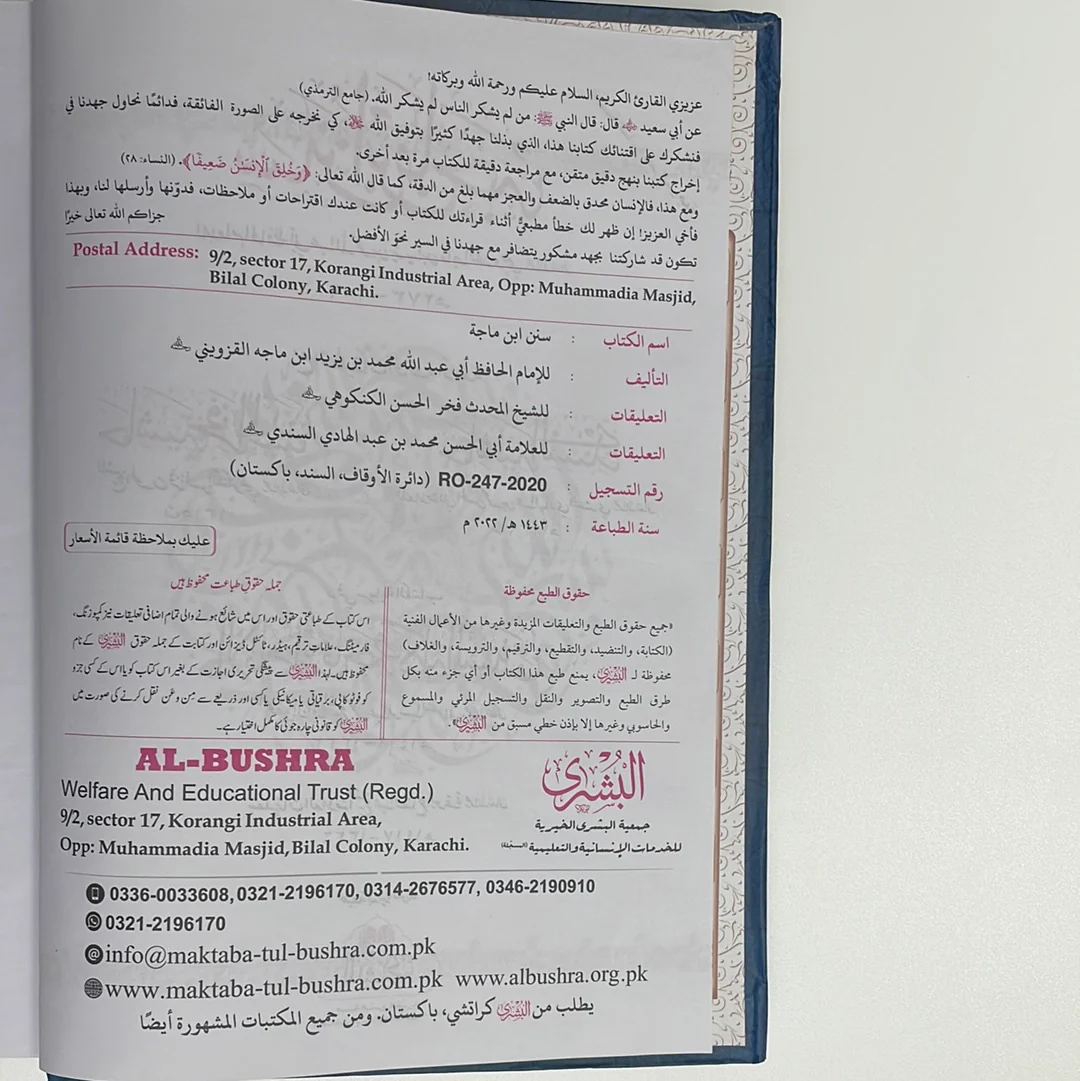 عزيزي القارئ الكريم، السلام عليكم ورحمة الله وبركاته!
عن أبي سعيد ﷺ قال: قال النبي ﷺ: من لم يشكر الناس لم يشكر الله. (جامع الترمذي)
فنشكرك على اقتنائك كتابنا هذا، الذي بذلنا جهدًا كثيرًا بتوفيق الله، كي نخرجه على الصورة الفائقة، فدائمًا نحاول جهدنا في
إخراج كتبنا بنهج دقيق متقن، مع مراجعة دقيقة للكتاب مرة بعد أخرى.
ومع هذا، فالإنسان محدق بالضعف والعجز مهما بلغ من الدقة، كما قال الله تعالى: ﴿وَخُلِقَ ٱلْإِنسَٰنُ ضَعِيفًا﴾. (النساء: ٢٨)
فأخي العزيز! إن ظهر لك خطأ مطبعيٌّ أثناء قراءتك للكتاب أو كانت عندك اقتراحات أو ملاحظات، فدوّنها وأرسلها لنا، وبهذا
تكون قد شاركتنا بجهد مشكور يتضافر مع جهدنا في السير نحوَ الأفضل. جزاكم الله تعالى خيرًا
Postal Address: 9/2, sector 17, Korangi Industrial Area, Opp: Muhammadia Masjid,
Bilal Colony, Karachi.
اسم الكتاب : سنن ابن ماجة
التأليف : للإمام الحافظ أبي عبد الله محمد بن يزيد ابن ماجه القزويني
التعليقات : للشيخ المحدث فخر الحسن الكنكوهي
التعليقات : للعلامة أبي الحسن محمد بن عبد الهادي السندي
رقم التسجيل : RO-247-2020 (دائرة الأوقاف، السند، باكستان)
سنة الطباعة : ١٤٤٣ هـ/ ٢٠٢٢ م
عليك بملاحظة قائمة الأسعار
حقوق الطبع محفوظة
«جميع حقوق الطبع والتعليقات المزيدة وغيرها من الأعمال الفنية
(الكتابة، والتنضيد، والتقطيع، والترقيم، والترويسة، والغلاف)
محفوظة لـ البشرى، يمنع طبع هذا الكتاب أو أي جزء منه بكل
طرق الطبع والتصوير والنقل والتسجيل المرئي والمسموع
والحاسوبي وغيرها إلا بإذن خطي مسبق من البشرى».
جملہ حقوقِ طباعت محفوظ ہیں
اس کتاب کے طباعتی حقوق اور اس میں شائع ہونے والی تمام اضافی تعلیقات نیز کمپوزنگ،
فارمیٹنگ، علاماتِ ترقیم، ہیڈر، ٹائٹل ڈیزائن اور کتابت کے جملہ حقوق البشرى کے نام
محفوظ ہیں۔ لہٰذا البشرى سے پیشگی تحریری اجازت کے بغیر اس کتاب کو یا اس کے کسی جزو
کو فوٹو کاپی، برقیاتی یا میکانیکی یا کسی اور ذریعے سے مِن وعَن نقل کرنے کی صورت میں
البشرى کو قانونی چارہ جوئی کا مکمل اختیار ہے۔
AL-BUSHRA
Welfare And Educational Trust (Regd.)
9/2, sector 17, Korangi Industrial Area,
Opp: Muhammadia Masjid, Bilal Colony, Karachi.
البشرى
جمعية البشرى الخيرية
للخدمات الإنسانية والتعليمية (المسجلة)
0336-0033608, 0321-2196170, 0314-2676577, 0346-2190910
0321-2196170
info@maktaba-tul-bushra.com.pk
www.maktaba-tul-bushra.com.pk www.albushra.org.pk
يطلب من البشرى كراتشي، باكستان. ومن جميع المكتبات المشهورة أيضًا